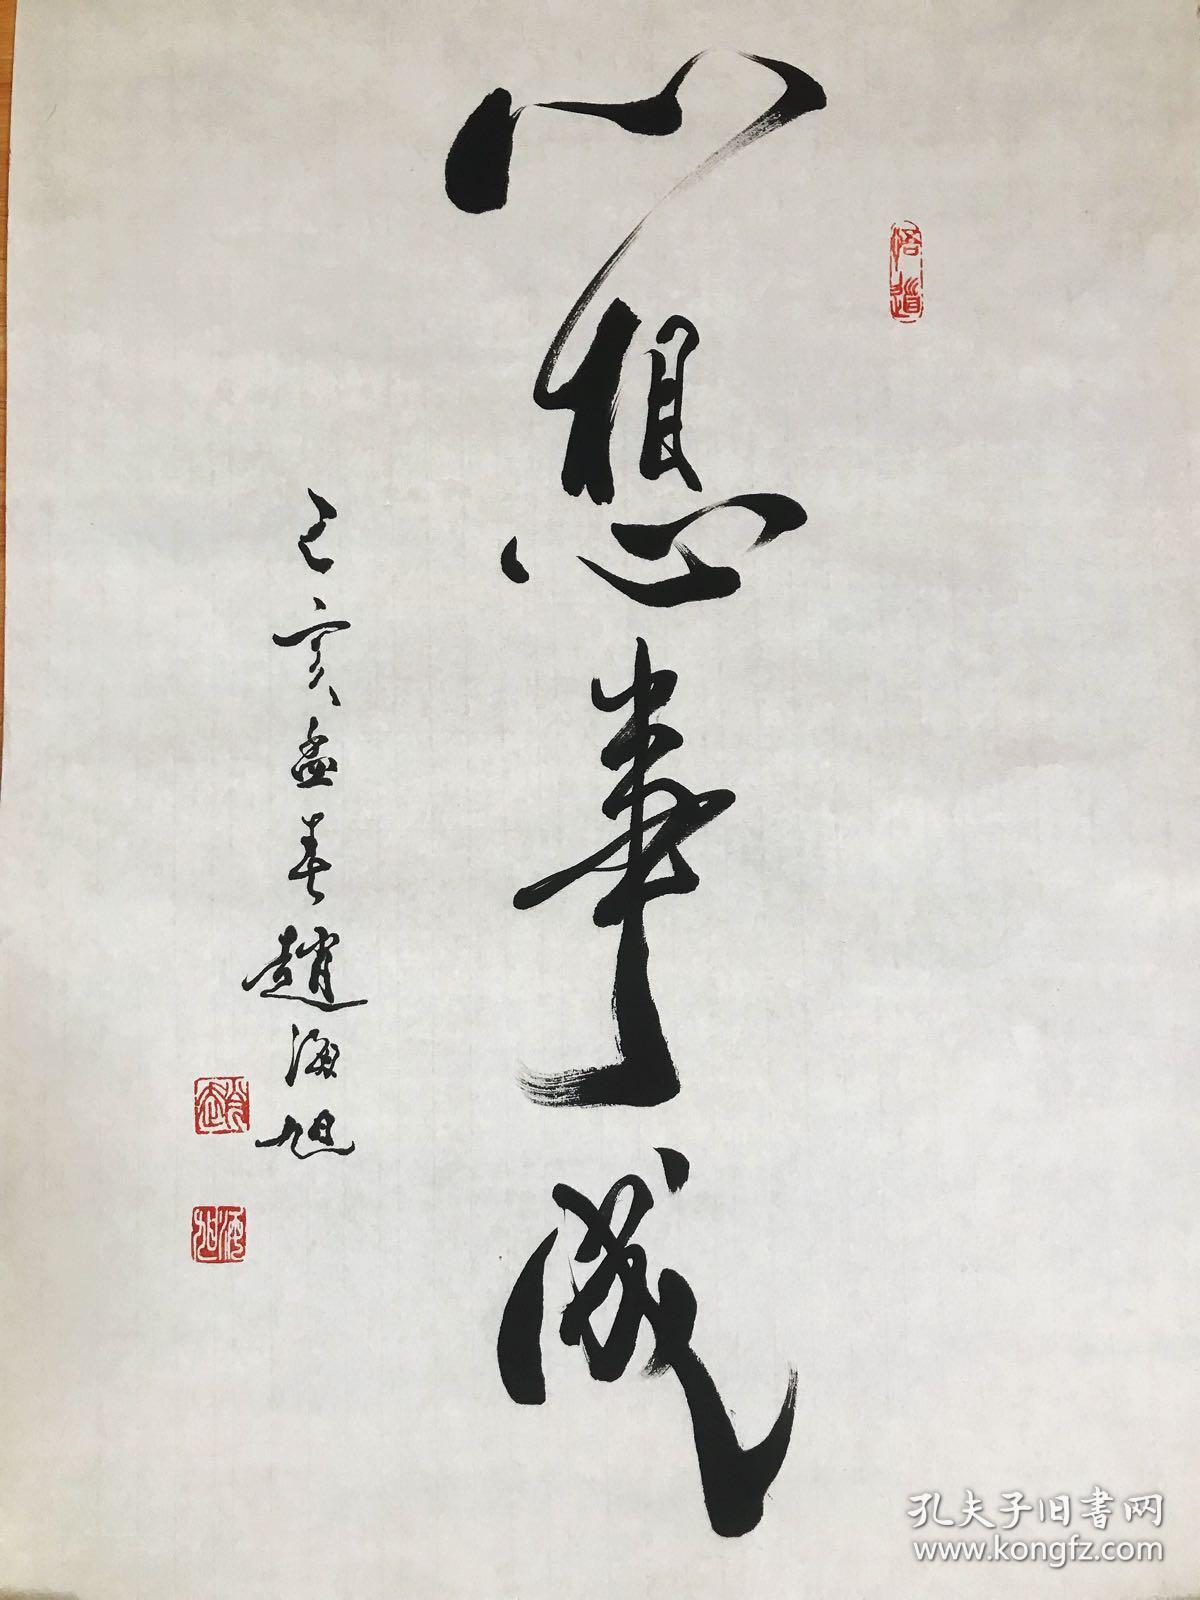 心想事成
己亥孟春趙海旭
悟道
趙
海旭
孔夫子旧書网
www.kongfz.com